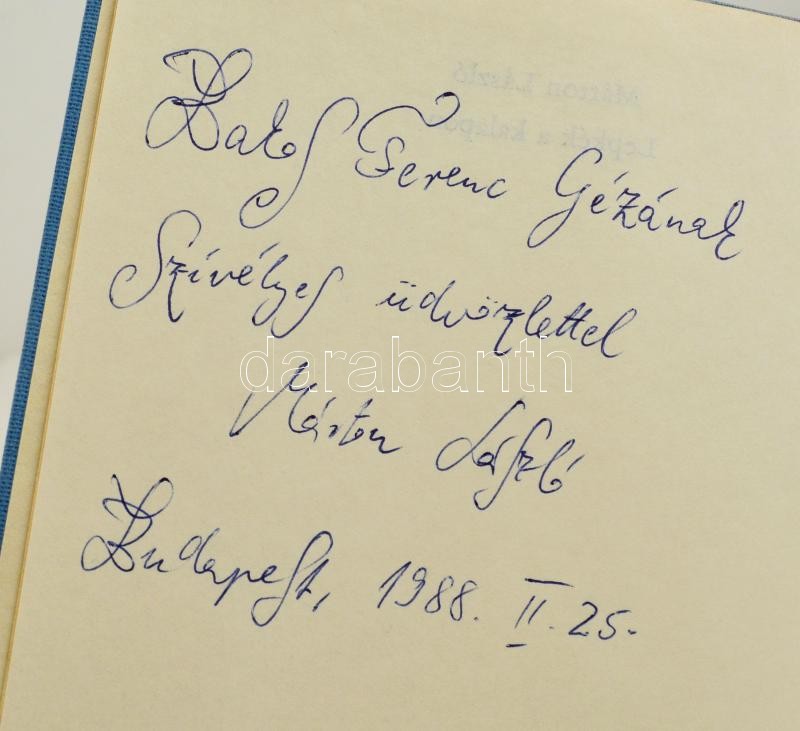 Márton László
Lepkék a kalapon
Ferenc Gézának
Szívélyes üdvözlettel
darabanth
Márton László
Budapest, 1988. II. 25.